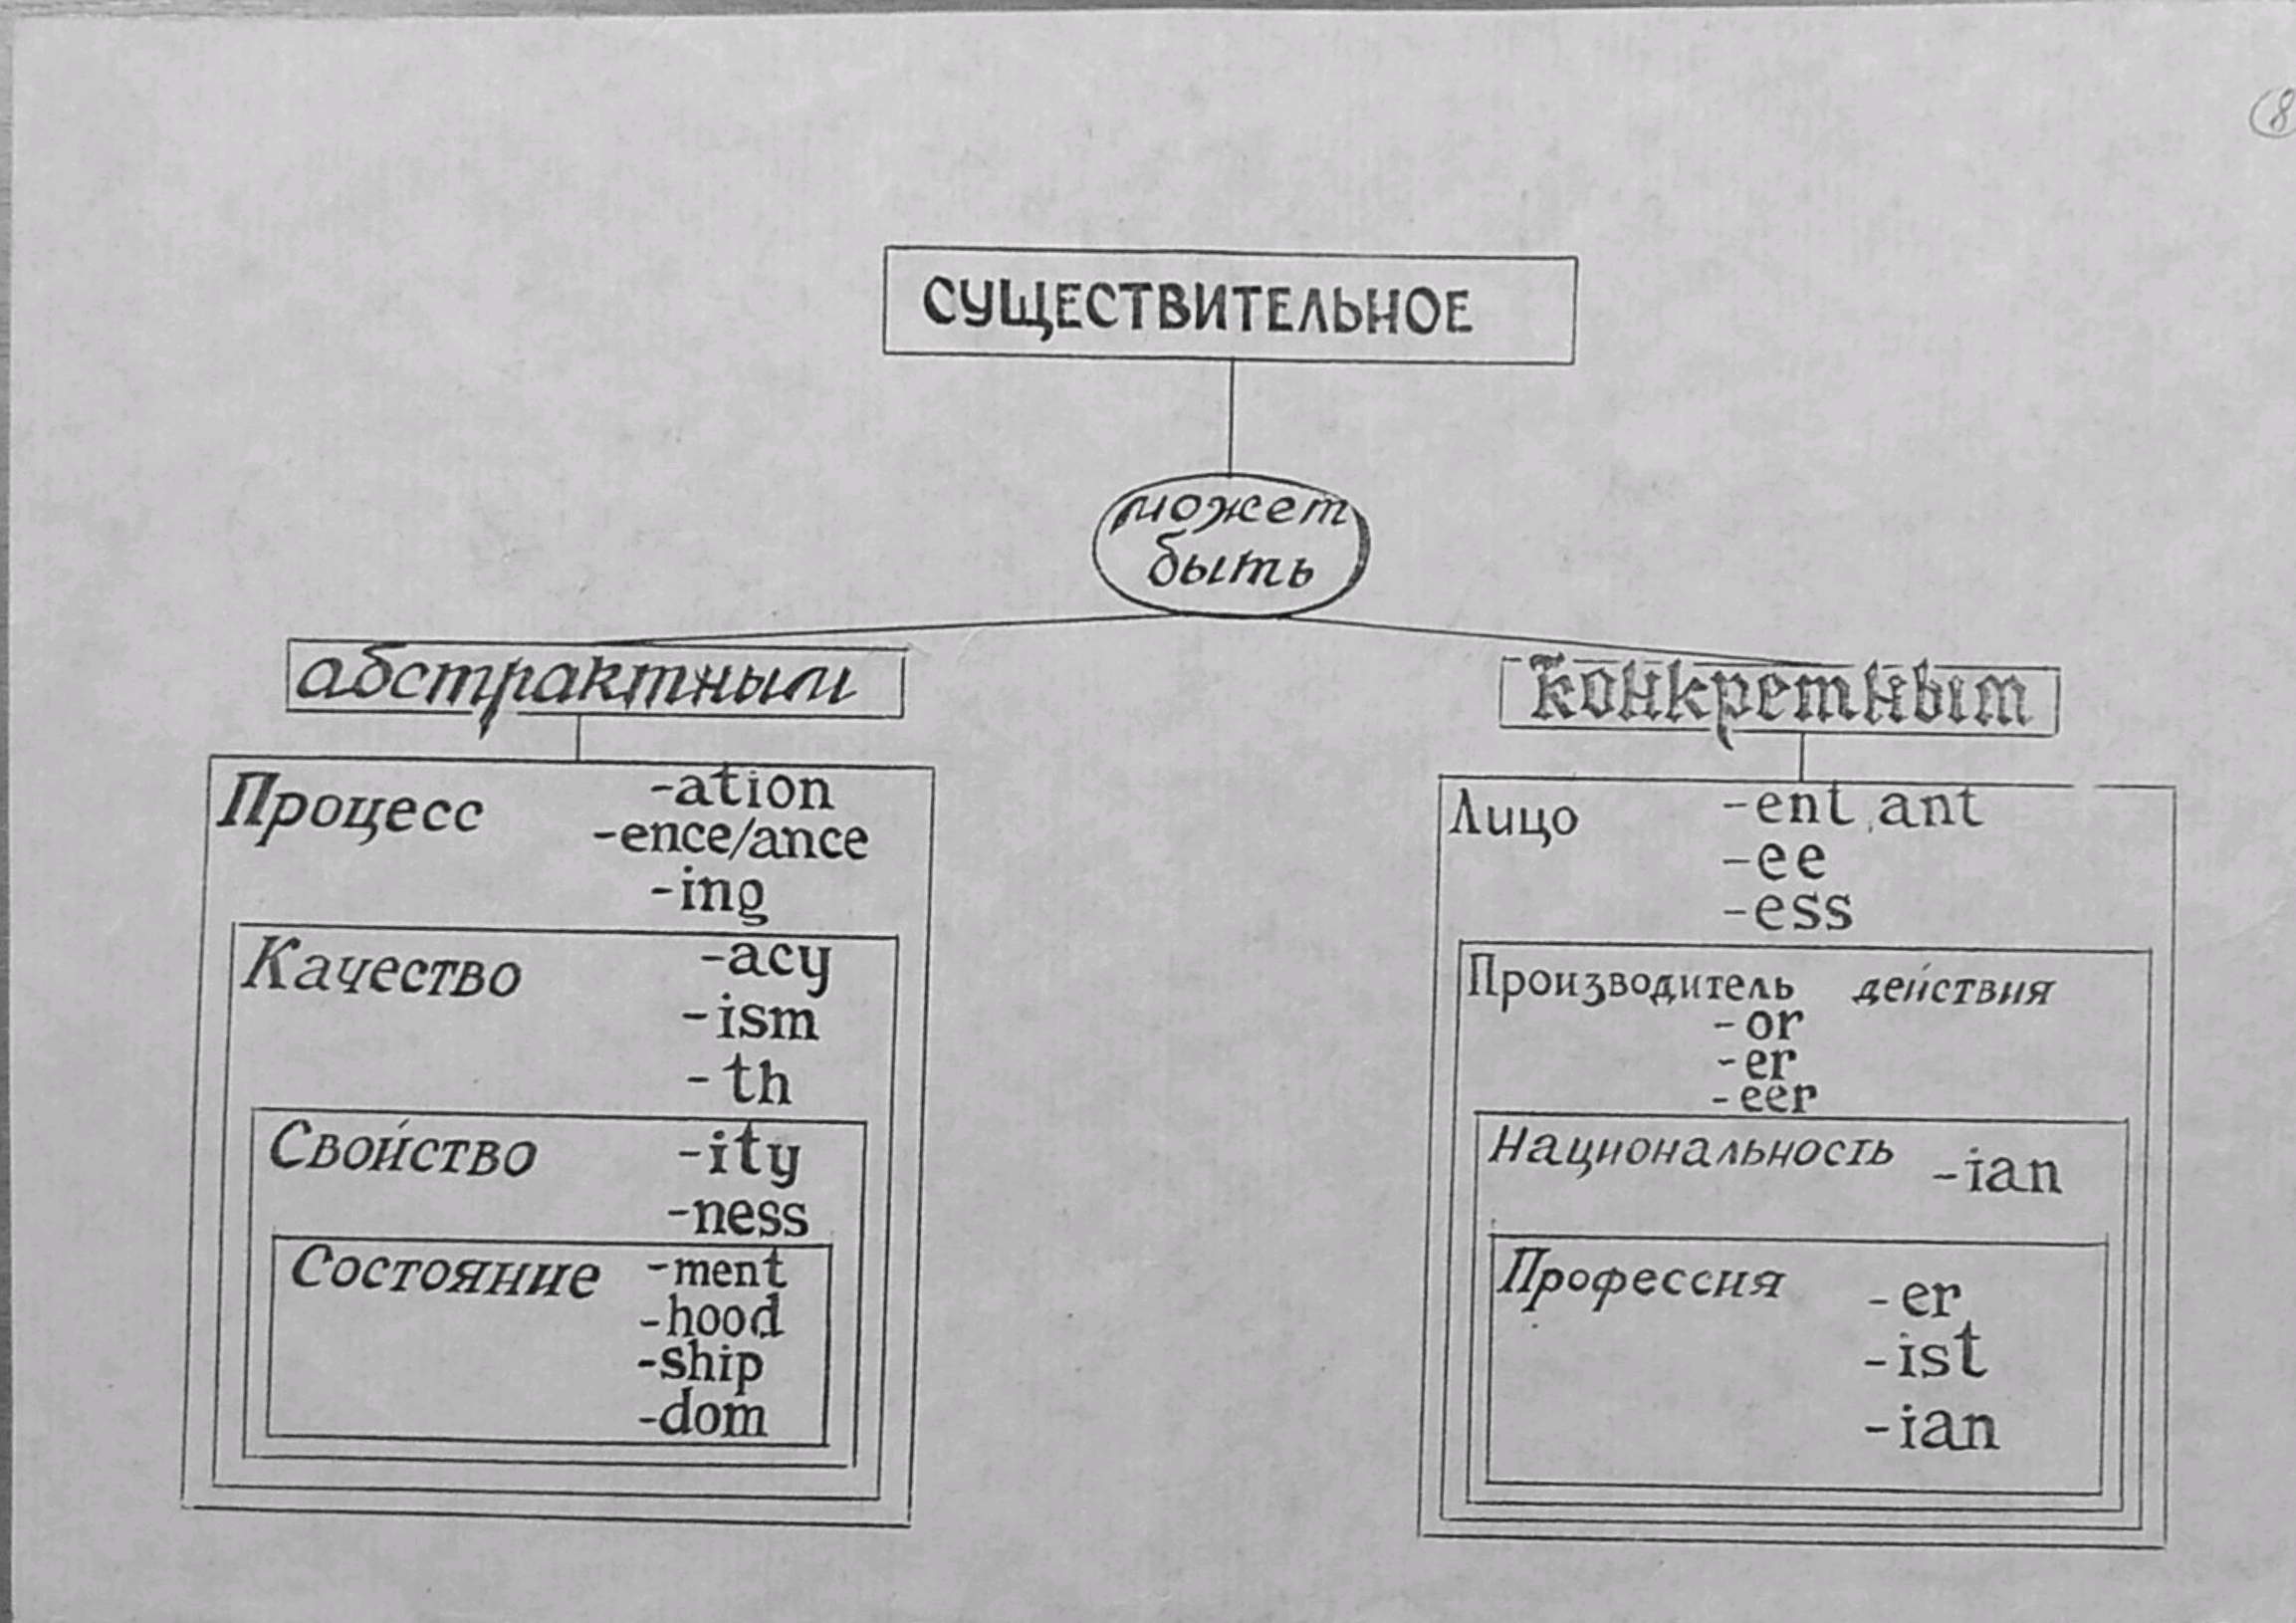 8
СУЩЕСТВИТЕЛЬНОЕ
может
быть
абстрактным
Процесс -ation
-ence/ance
-ing
Качество -acy
-ism
-th
Свойство -ity
-ness
Состояние -ment
-hood
-ship
-dom
конкретным
Лицо -ent, ant
-ee
-ess
Производитель действия
-or
-er
-eer
Национальность -ian
Профессия -er
-ist
-ian